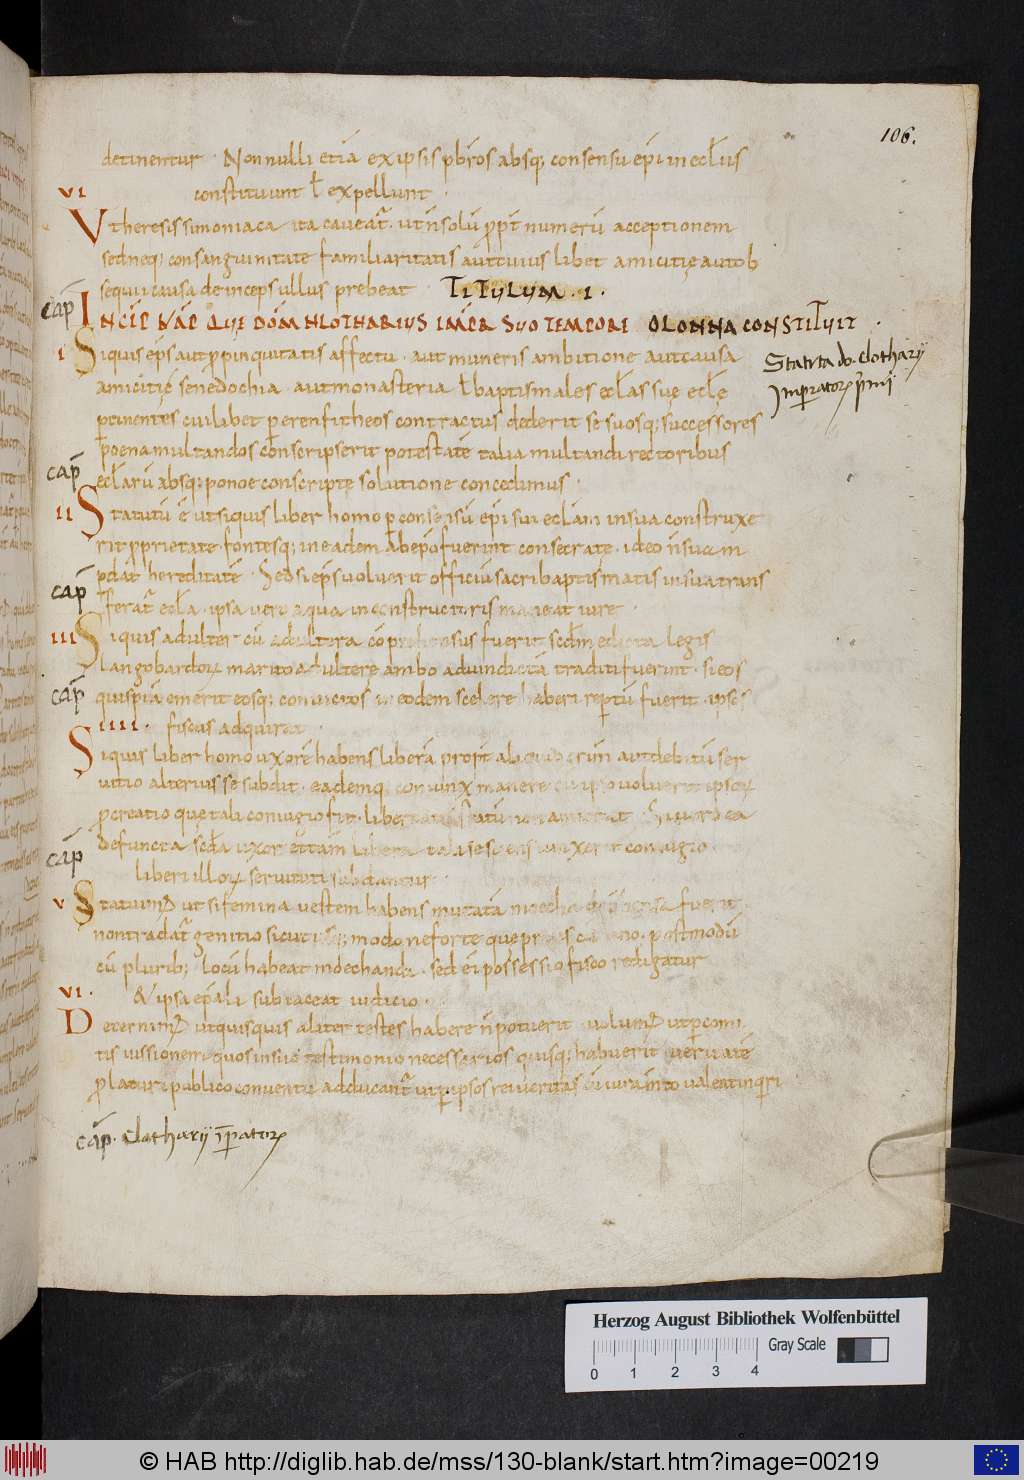 106.
detinentur · Nonnulli etiā ex ipsis pb̄ros absq; consensu ep̄i in eccl̄iis
constituunt ł expellunt ·
VI
Ut heresis simoniaca ita caveat̄ · ut n̄ solū ꝓpt̄ numerū acceptionem
sed neq; consanguinitate familiaritatis aut cuius libet amicitię aut ob
sequii causa deinceps ullus prebeat TITULUM · I ·
cap̄ INCIP̄ KAP̄ QUE DOM̄N HLOTHARIUS IMPER̄ SUO TEMPORE OLONNA CONSTITUIT ·
Statuta do. Clotharij
Imperatorꝫ primij
I Siquis ep̄s aut ꝓpinquitatis affectu · aut muneris ambitione aut causa
amicitię senedochia · aut monasteria ł baptismales eccl̄as suę eccl̄ę
ꝑtinentes cuilibet per enfitheos contractus dederit se suosq; successores
poena multandos conscripserit potestatē talia mutandi rectoribus
cap̄
eccl̄arū absq; poenę conscriptę solutione concedimus ·
II Statutū ē ut siquis liber homo ꝑ consensū ep̄i sui eccl̄iam in sua construxe
rit ꝓprietate · fontesq; in eadem ab ep̄o fuerint consecrate · ideo n̄ suam
cap̄
ꝑdat hereditatē · Sed si ep̄s voluerit officiū sacri baptismatis in sua trans
ferat̄ eccl̄a · ipsa vero aqua in constructoris maneat iure ·
III Siquis adulter cū adultera cōprehensus fuerit scd̄m edicta legis
langobardorꝫ marito adulterę ambo ad vindictā traditi fuerint · si eos
cap̄
quispiā emerit eosq; coniunctos in eodem scelere haberi reptū fuerit · ipsos
IIII · fiscus adquirat ·
Siquis liber homo uxorē habens liberā propt̄ aliquod crimē aut debitū ser
vitio alterius se subdit · eademq; coniunx manere cū ipso voluerit ipsorꝫ
ꝓcreatio que tali coniugio fit · libertatis statū non amittat · Si vero ea
defuncta scd̄a uxor et tam̄ libera tali se sciens iunxerit coniugio
cap̄
liberi illorꝫ servituti subdantur ·
V Statuim̄ ut si femina vestem habens mutatā moecha dephensa fuerit ·
non tradat̄ genitio sicut usq; modo ne forte que prius cū uno · postmodū
cū plurib; locū habeat moechandi · sed ei possessio fisco redigatur
VI · & ipsa ep̄ali subiaceat iudicio ·
Decernim̄ ut quisquis aliter testes habere n̄ potuerit · volum̄ ut ꝑ comi
tis iussionem quos in suo testimonio necessarios quisq; habuerit veritatē
ꝓlaturi publico conventu adducant̄ ut ꝑ ipsos rei veritas cū iuramto valeat inqri
cap̄. Clotharij īperatorꝫ
Herzog August Bibliothek Wolfenbüttel
Gray Scale
0 1 2 3 4
© HAB http://diglib.hab.de/mss/130-blank/start.htm?image=00219